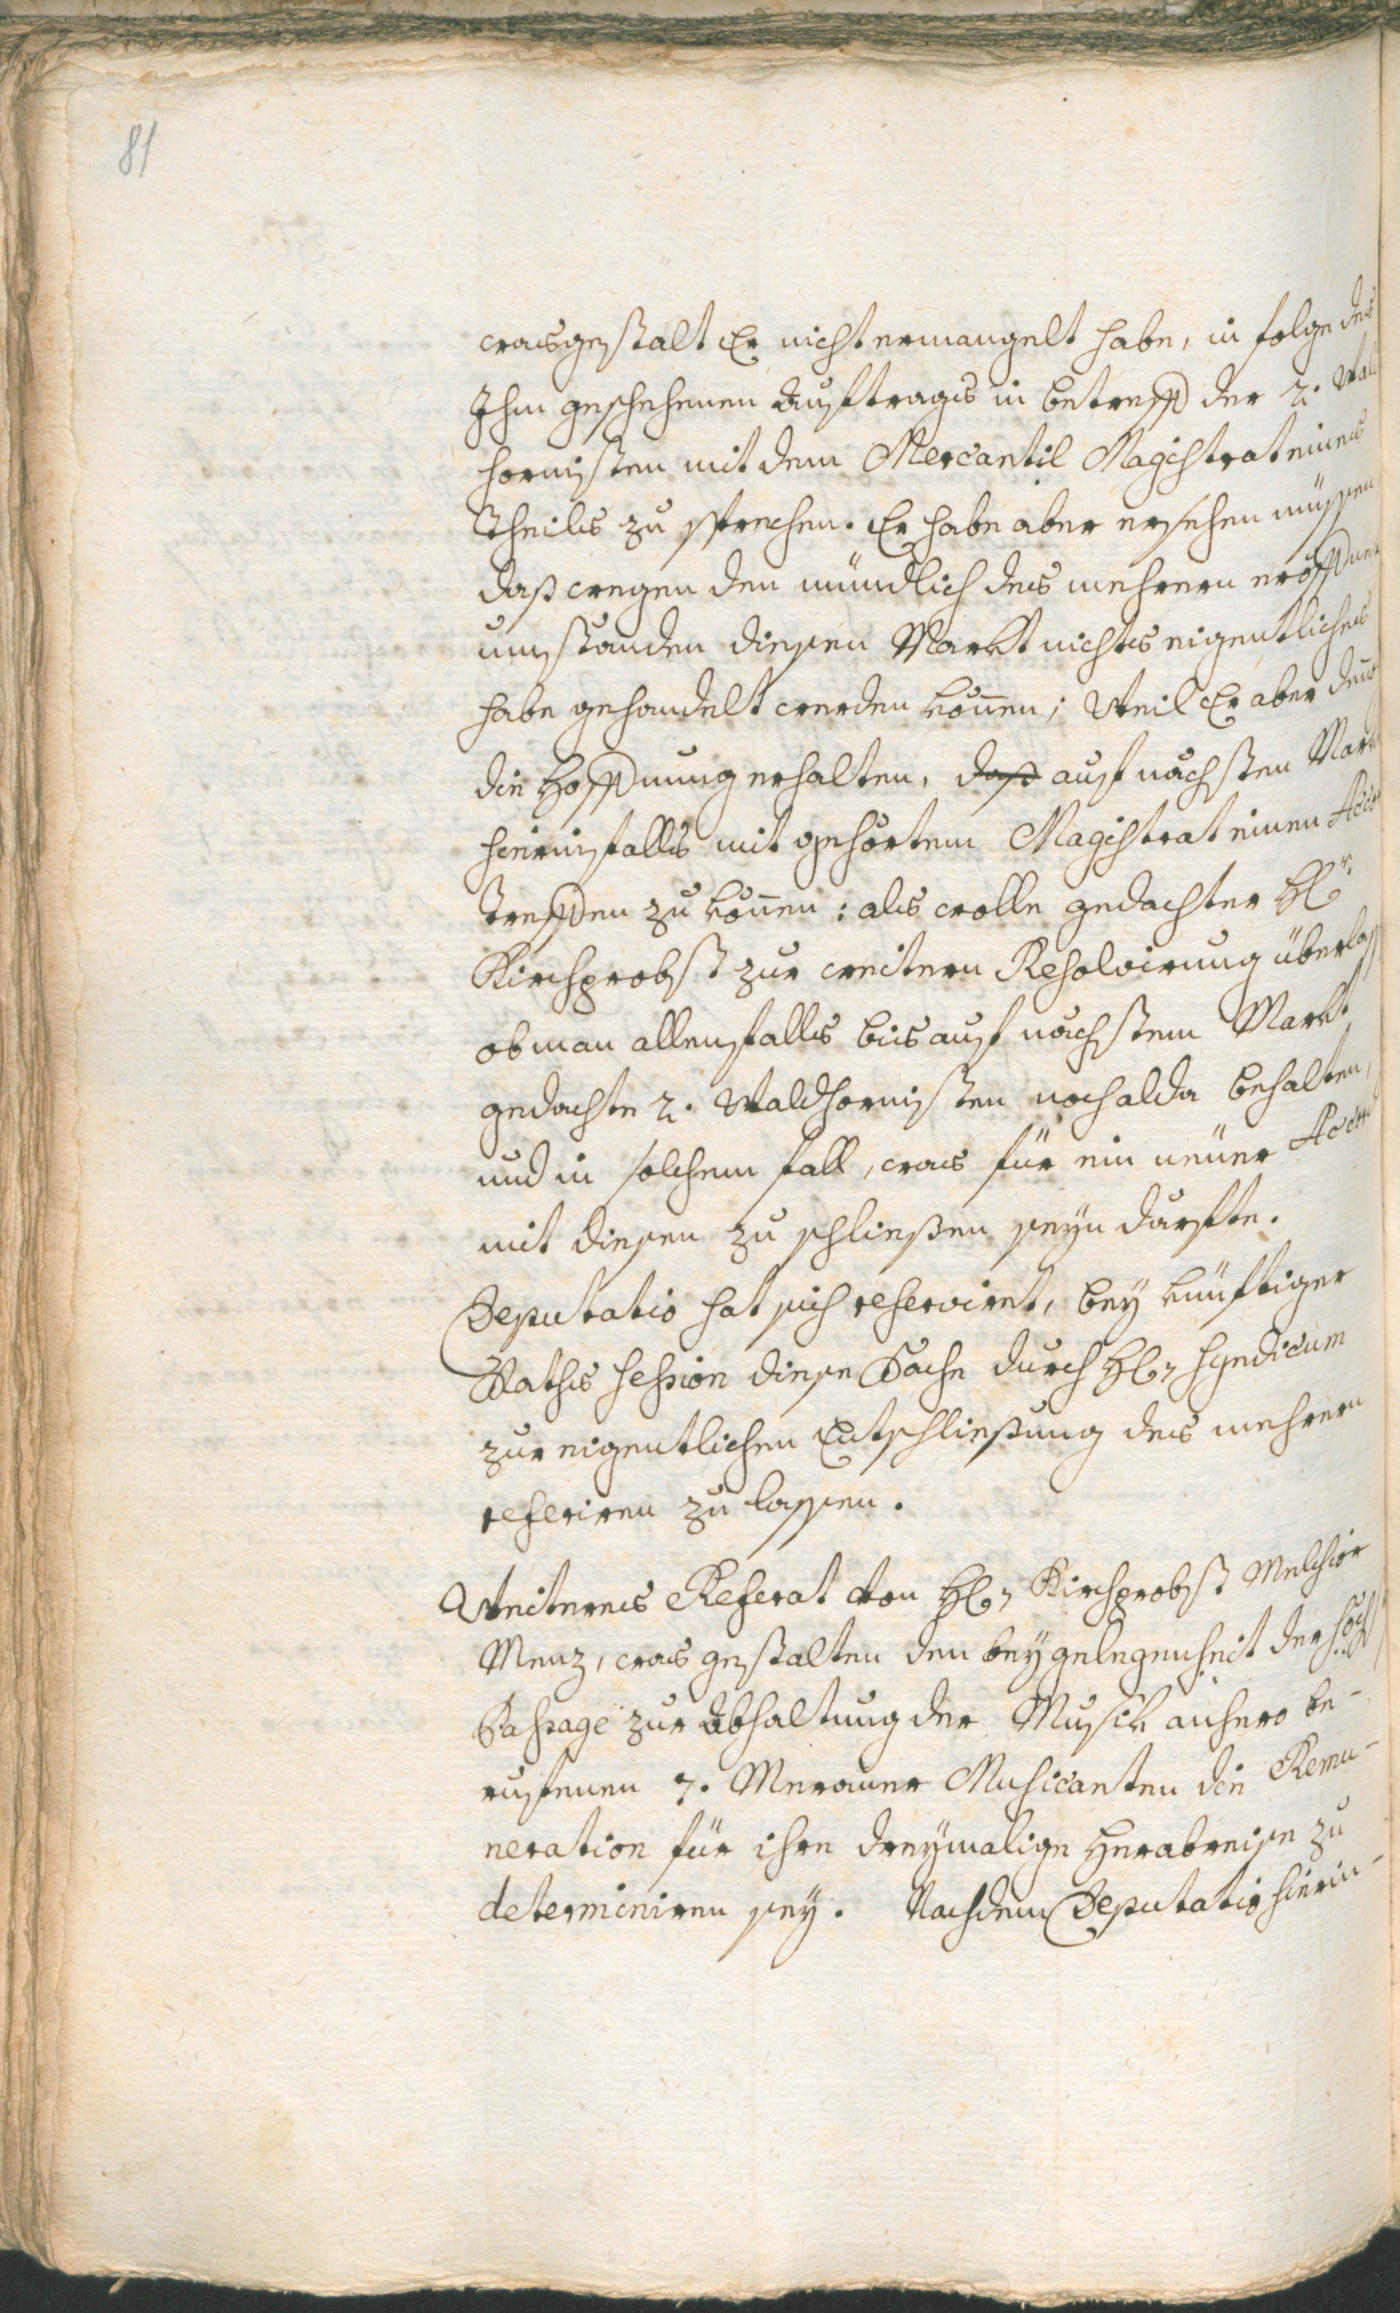 81
wasgestalt Er nicht ermangelt habe, in folge des
Ihm geschehenen Auftrags in betreff der 2. Wald
hornisten mit dem Mercantil Magistrat eines
Theils zu sprechen. Er habe aber ersehen müssen
daß wegen den mündlich des mehrern eröffneten
umständen diesen Markt nichts eigentliches
habe gehandelt werden können; Weil Er aber
die Hoffnung erhalten, daß auf nächsten Markt
hierinfalls mit gehörtem Magistrat einen
treffen zu können: als wolle gedachter H:r
Kirchprobst zur weitern Resolvirung überlass
ob man allenfalls bis auf nächstem Markt
gedachte 2. Waldhornisten noch alda behalten,
und in solchem fall, was für ein neüer Accord
mit diesen zu schließen seyn därfte.
Deputatio hat sich reserviret, bey künftiger
Raths Session diese Sache durch H: Syndicum
zur eigentlichen Entschließung des mehrern
referiren zu lassen.
Weiteres Referat von H: Kirchprobst Melchior
Menz, was gestalten den bey gelegenheit der höchst
Passage zur Abhaltung der Musik anhero be-
rufenen 7. Meraner Musicanten die Remu-
neration für ihre dreymalige Herabreise zu
determiniren sey. Nachdem Deputatio hierin-